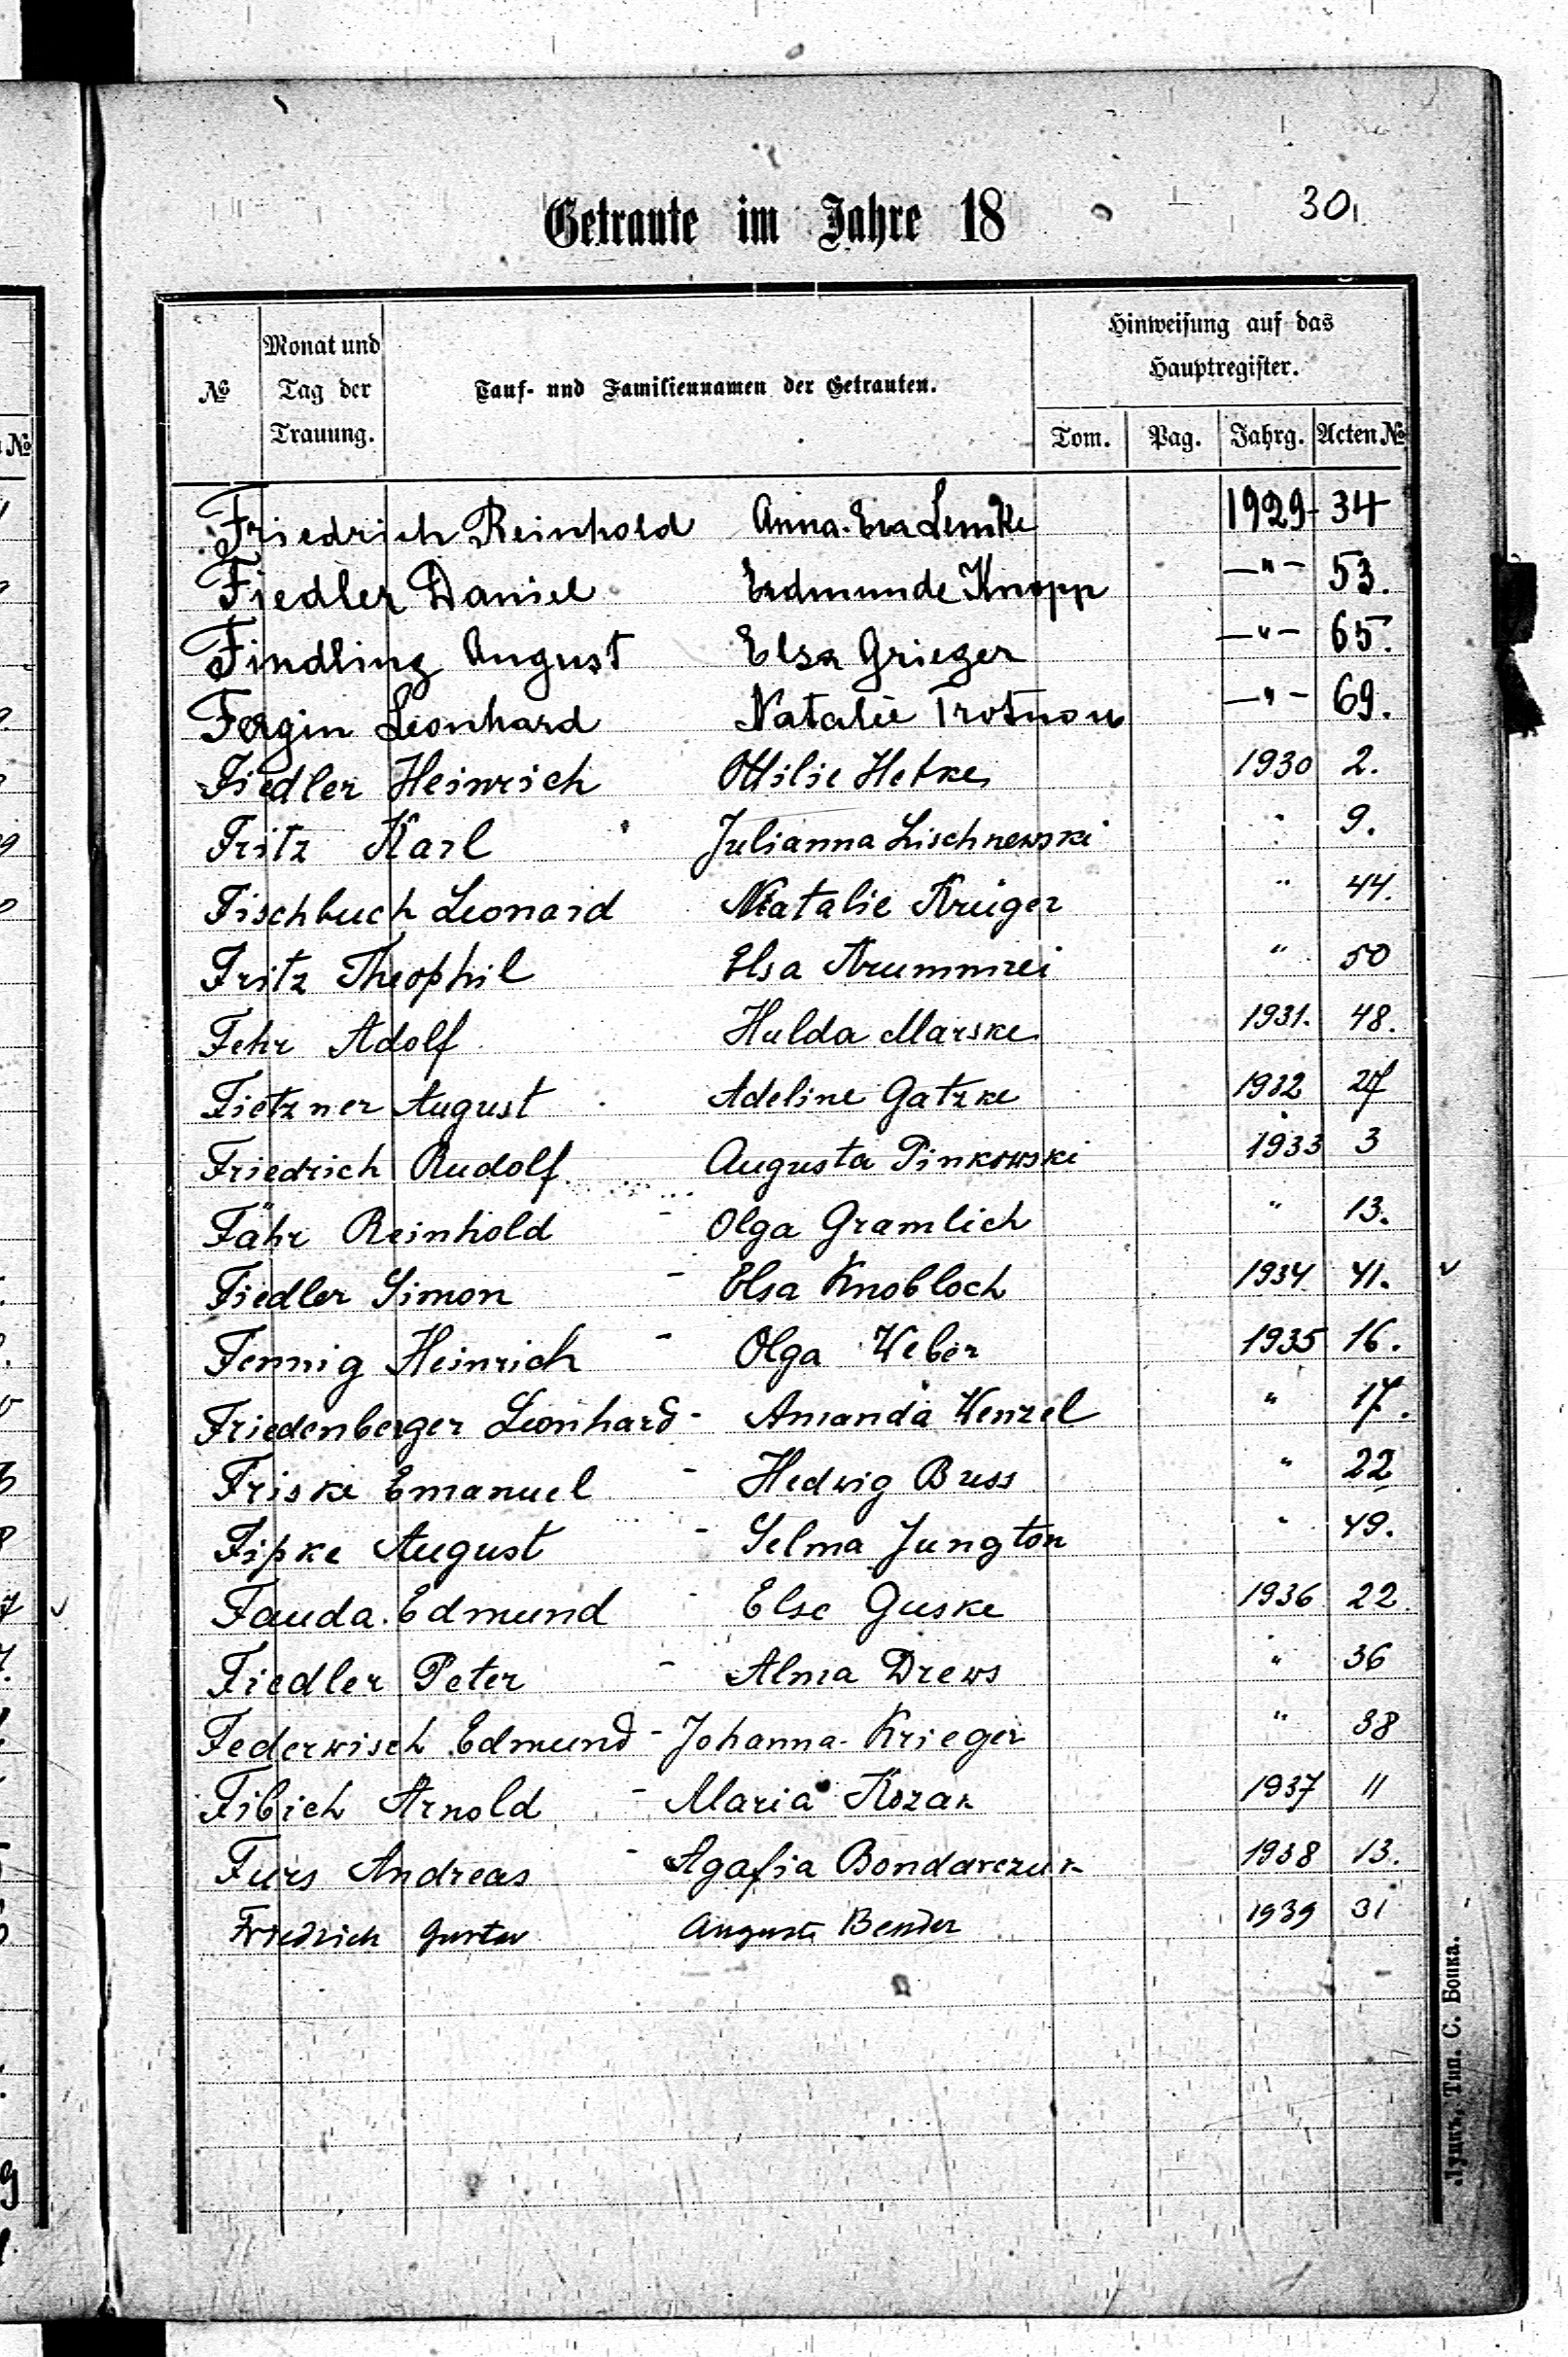 Getraute im Jahre 18
30.
№ Monat und Tag der Trauung. Tauf- und Familiennamen der Getrauten. Hinweisung auf das Hauptregister.
Tom. Pag. Jahrg. Acten №
Friedrich Reinhold Anna-Eva Lemke 1929- 34
Fiedler Daniel Erdmunde Knopp —"— 53.
Findling August Elsa Grieger —"— 65.
Fergin Leonhard Natalie Trotnow —"— 69.
Fiedler Heinrich Ottilie Hetke 1930 2.
Fritz Karl Julianna Lischnewski " 9.
Fischbuch Leonard Natalie Krüger " 44.
Fritz Theophil Elsa Krummrei " 50
Fehr Adolf Hulda Marske 1931. 48.
Fietzner August Adeline Gatzke 1932 27
Friedrich Rudolf Augusta Pinkowski 1933 3
Fähr Reinhold - Olga Gramlich " 13.
Fiedler Simon - Elsa Knobloch 1934 41. v
Fennig Heinrich - Olga Weber 1935 16.
Friedenberger Leonhard - Amanda Wenzel " 17.
Friske Emanuel - Hedwig Buss " 22
Fipke August - Selma Jungton " 49.
Fauda Edmund - Else Guske 1936 22
Fiedler Peter - Alma Drews " 36
Federwisch Edmund - Johanna Krieger " 38
Fibich Arnold - Maria Kozak 1937 11
Furs Andreas - Agafia Bondarczuk 1938 13.
Friedrich Gustav Auguste Bender 1939 31
Луцкъ, Тип. С. Бокка.